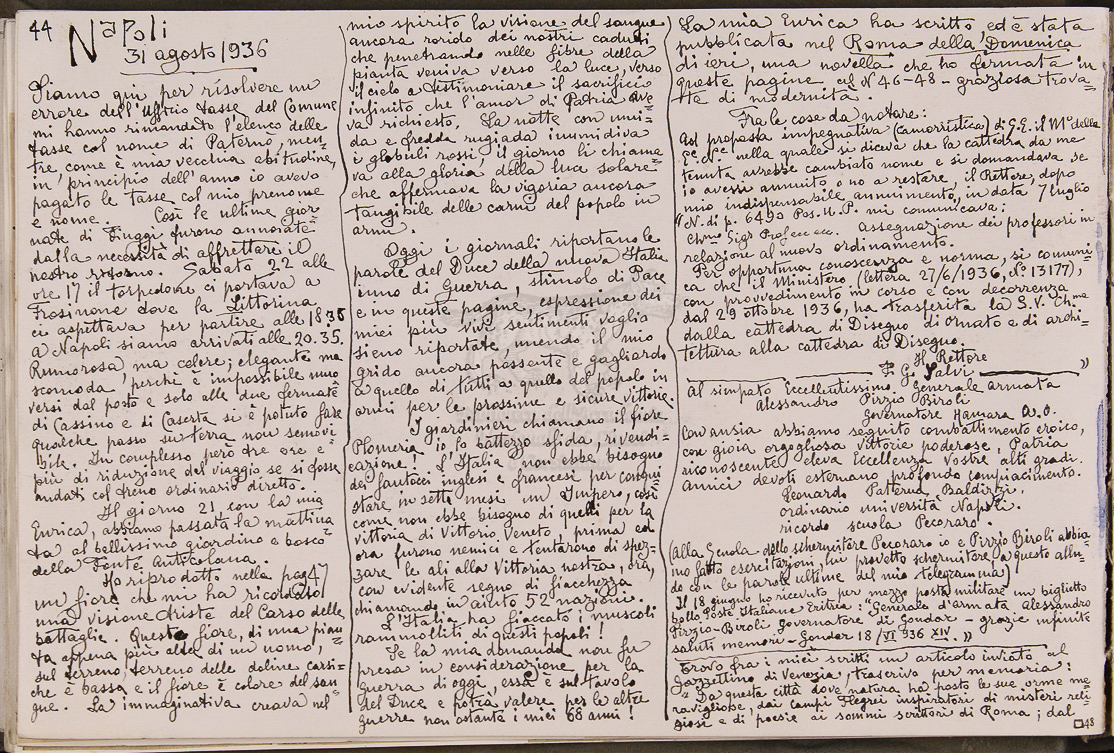 44 Napoli
31 agosto 1936
Siamo qui per risolvere un
errore dell'Ufficio tasse del Comune
mi hanno rimandato l'elenco delle
tasse col nome di Paternò, men=
tre come è mia vecchia abitudine,
in principio dell'anno io avevo
pagato le tasse col mio prenome
e nome. Così le ultime gior=
nate di Fiuggi furono annoiate
dalla necessità di affrettare il
nostro ritorno. Sabato 22 alle
ore 17 il torpedone ci portava a
Frosinone dove la Littorina
ci aspettava per partire alle 18.35
a Napoli siamo arrivati alle 20.35.
Rumorosa, ma celere; elegante ma
scomoda, perchè è impossibile muo
versi dal posto e solo alle due fermate
di Cassino e di Caserta si è potuto fare
qualche passo su terra non semovi=
bile. In complesso però tre ore e
più di riduzione del viaggio se si fosse
andati col treno ordinario diretto.
Il giorno 21, con la mia
Enrica, abbiamo passata la mattina
ta al bellissimo giardino e bosco
della Fonte Anticolana.
Ho riprodotto nella pag 47
un fiore che mi ha ricordato
una visione triste del Carso delle
battaglie. Questo fiore, di una pian
ta appena più alta di un uomo,
sul terreno, terreno delle doline carsi=
che è bassa e il fiore è colore del san=
gue. La immaginativa creava nel
mio spirito la visione del sangue
ancora rorido dei nostri caduti
che penetrando nelle fibre della
pianta veniva verso la luce, verso
il cielo a testimoniare il sacrificio
infinito che l'amor di Patria ave=
va richiesto. La notte con umi=
da e fredda rugiada inumidiva
i globuli rossi, il giorno li chiama=
va alla gloria della luce solare
che affermava la vigoria ancora
tangibile delle carni del popolo in
armi.
Oggi i giornali riportano le
parole del Duce della nuova Italia
inno di Guerra, stimolo di Pace
e in queste pagine, espressione dei
miei più vivi sentimenti voglio
sieno riportate, unendo il mio
grido ancora possente e gagliardo
a quello di tutti a quello del popolo in
armi per le prossime e sicure vittorie.
I giardinieri chiamano il fiore
Plomeria io lo battezzo sfida, rivendi=
cazione! L'Italia non ebbe bisogno
dei fantocci inglesi e francesi per conqui
stare in sette mesi un Impero, così
come non ebbe bisogno di quelli per la
vittoria di Vittorio Veneto, prima ed
ora furono nemici e tentarono di spez=
zare le ali alla Vittoria nostra, ora,
con evidente segno di fiacchezza
chiamando in aiuto 52 nazioni.
L'Italia ha fiaccato i muscoli
rammolliti di questi popoli!
Se la mia domanda non fu
presa in considerazione per la
guerra di oggi, essa è sul tavolo
del Duce e potrà valere per le altre
guerre non ostante i miei 68 anni!
La mia Enrica ha scritto ed è stata
pubblicata nel Roma della Domenica
di ieri, una novella che ho fermata in
queste pagine al N 46-48 - graziosa trova
ta di modernità.
Fra le cose da notare:
Ad proposta impegnativa (camorristica) di G.E. il M° della
nella quale si diceva che la cattedra da me
tenuta avrebbe cambiato nome e si domandava se
io avessi annuito o no a restare, il Rettore, dopo
mio indispensabile annuimento, in data 7 luglio
"N. di p. 6490 Pos. H.P. mi comunicava:
Chmo Sigr Prof ecc ecc. Assegnazione dei professori in
relazione al nuovo ordinamento.
Per opportuna conoscenza e norma, si comuni
ca che il Ministero (lettera 27/6/1936, N° 13177),
con provvedimento in corso e con decorrenza
dal 29 ottobre 1936, ha trasferita la S.V. Chma
dalla cattedra di Disegno di Ornato e di archi=
tettura alla cattedra di Disegno.
Il Rettore
F. G. Salvi "
Al simpato Eccellentissimo Generale Armata
Alessandro Pirzio Biroli
Governatore Hamara A.O.
Con ansia abbiamo seguito combattimento eroico,
con gioia orgogliosa vittorie poderose, Patria
riconoscente eleva Eccellenza Vostra alti gradi.
Amici devoti esternano profondo compiacimento.
Leonardo Paternà Baldizzi,
ordinario università Napoli.
ricordo scuola Pecoraro.
(alla Scuola dello schermitore Pecoraro io e Pirzio Biroli abbia
mo fatto esercitazioni, lui provetto schermitore, a questo allu=
do con le parole ultime del mio telegramma)
Il 18 giugno ho ricevuto per mezzo posta militare un biglietto
bollo Poste Italiane Eritrea: "Generale d'armata Alessandro
Pirzio-Biroli governatore di Gondar - grazie infinite
saluti memori - Gondar 18/VI 936 XIV."
Trovo fra i miei scritti un articolo inviato al
Gazzettino di Venezia, trascrivo per memoria:
Da questa città dove natura ha posto le sue orme me=
ravigliose, dai campi Flegrei inspiratori di misteri reli
giosi e di poesie ai sommi scrittori di Roma; dal
48